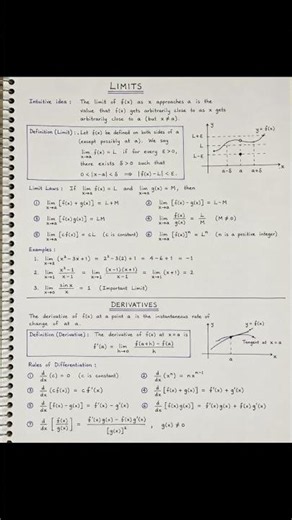 LIMITS
Intuitive idea : The limit of f(x) as x approaches a is the
value that f(x) gets arbitrarily close to as x gets
arbitrarily close to a (but x ≠ a)
Definition (Limit) : Let f(x) be defined on both sides of a
(except possibly at a). We say
lim x→a f(x) = L if for every ε > 0,
there exists δ > 0 such that
0 < |x-a| < δ ⇒ |f(x) - L| < ε.
y
y = f(x)
L+ε
L
L-ε
a-δ a a+δ x
Limit Laws : If lim x→a f(x) = L and lim x→a g(x) = M, then
① lim x→a [f(x) + g(x)] = L + M
② lim x→a [f(x) - g(x)] = L - M
③ lim x→a [f(x) g(x)] = LM
④ lim x→a f(x)/g(x) = L/M (M ≠ 0)
⑤ lim x→a [c f(x)] = cL (c is constant)
⑥ lim x→a [f(x)]ⁿ = Lⁿ (n is a positive integer)
Examples :
1. lim x→2 (x² - 3x + 1) = 2² - 3(2) + 1 = 4 - 6 + 1 = -1
2. lim x→1 x² - 1 / x - 1 = lim x→1 (x-1)(x+1) / x - 1 = lim x→1 (x+1) = 2
3. lim x→0 sin x / x = 1 (Important Limit)
DERIVATIVES
The derivative of f(x) at a point a is the instantaneous rate of
change of f at a.
Definition (Derivative) : The derivative of f(x) at x = a is
f'(a) = lim h→0 f(a+h) - f(a) / h
y
y = f(x)
Tangent at x = a
a
x
Rules of Differentiation :
① d/dx (c) = 0 (c is constant)
② d/dx (xⁿ) = nxⁿ⁻¹
③ d/dx (cf(x)) = c f'(x)
④ d/dx [f(x) + g(x)] = f'(x) + g'(x)
⑤ d/dx [f(x) - g(x)] = f'(x) - g'(x)
⑥ d/dx [f(x) g(x)] = f'(x) g(x) + f(x) g'(x)
⑦ d/dx [f(x)/g(x)] = f'(x) g(x) - f(x) g'(x) / [g(x)]² , g(x) ≠ 0